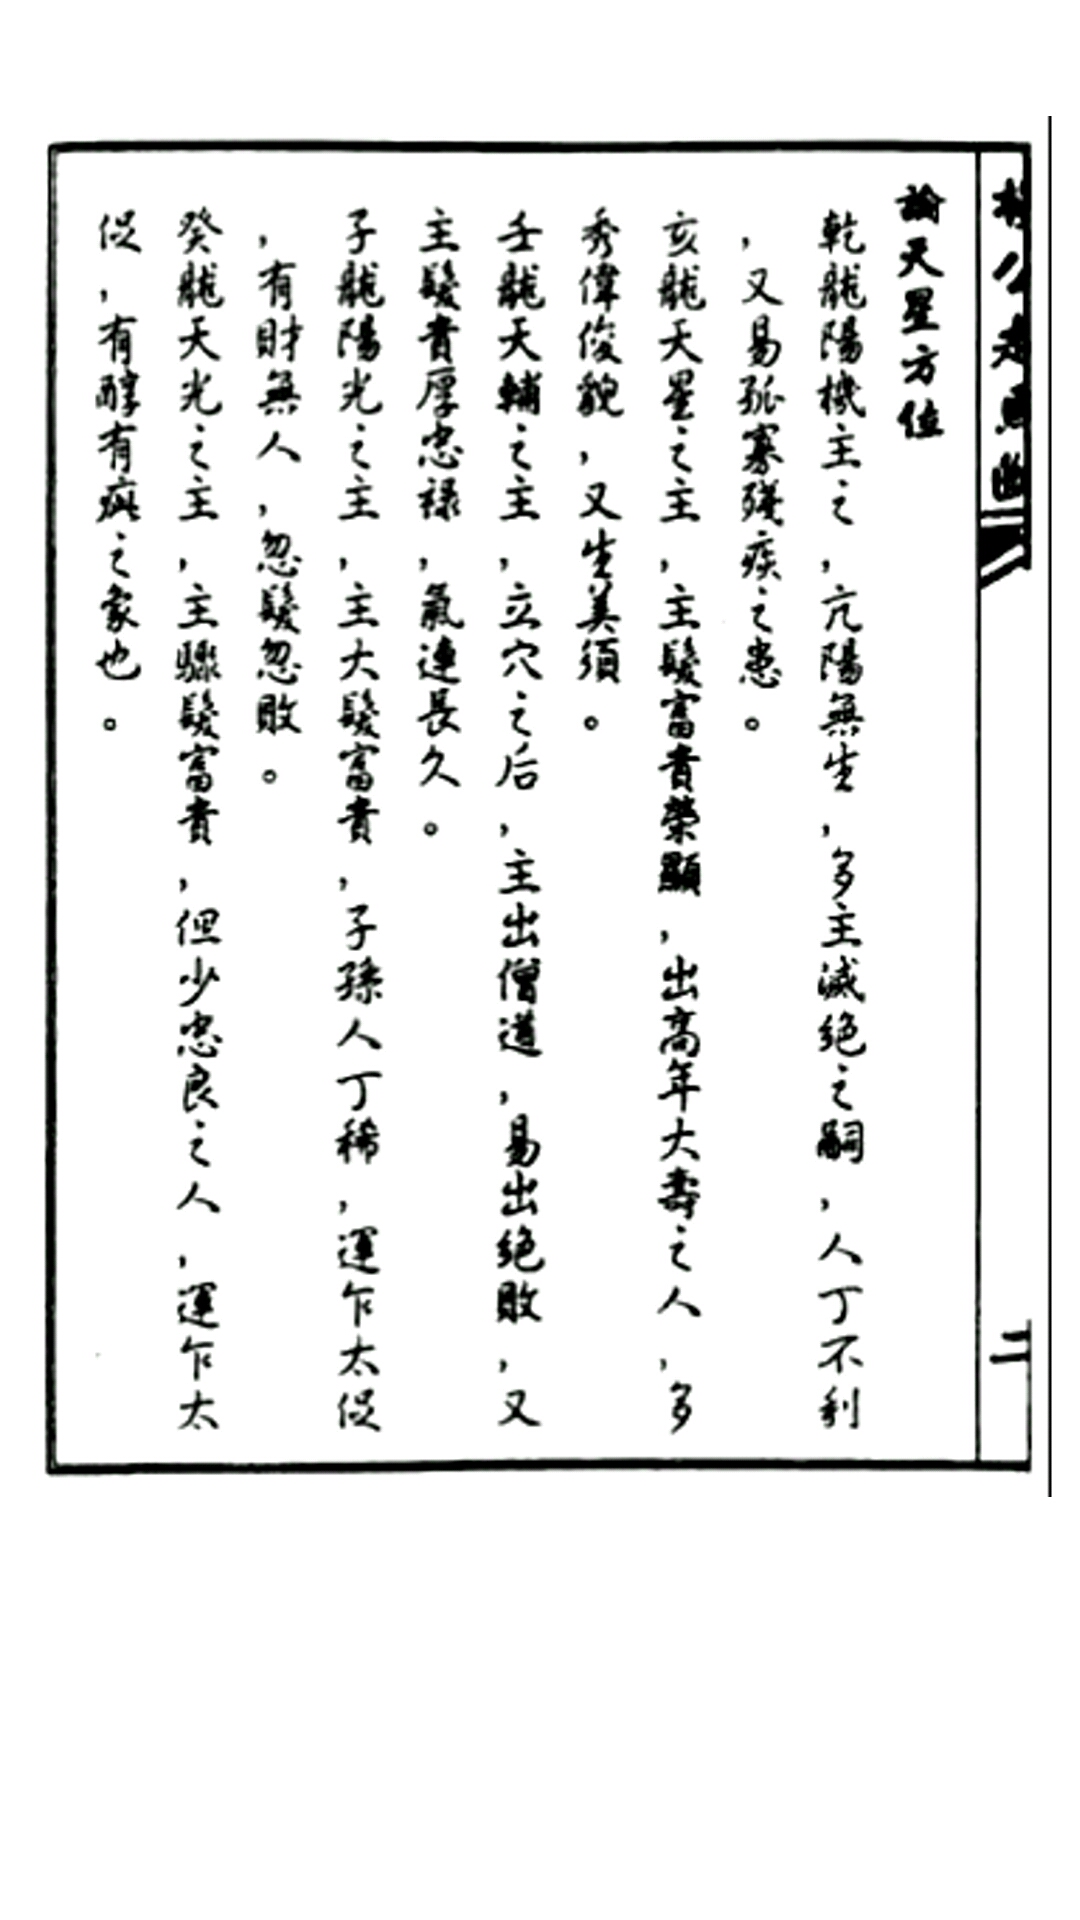 公
二
論天星方位
乾龍陽機主之，亢陽無生，多主滅絕之嗣，人丁不利
，又易孤寡殘疾之患。
亥龍天星之主，主髮富貴榮顯，出高年大壽之人，多
秀偉俊貌，又生美須。
壬龍天輔之主，立穴之后，主出僧道，易出絕敗，又
主髮貴厚忠祿，氣連長久。
子龍陽光之主，主大髮富貴，子孫人丁稀，運乍太促
，有財無人，忽髮忽敗。
癸龍天光之主，主驟髮富貴，但少忠良之人，運乍太
促，有醇有疵之象也。